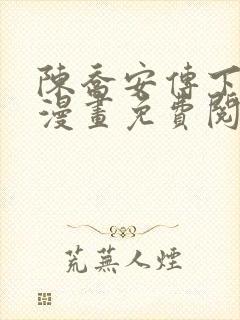 陳喬安傳下
漫畫免費閱
荒蕪人煙